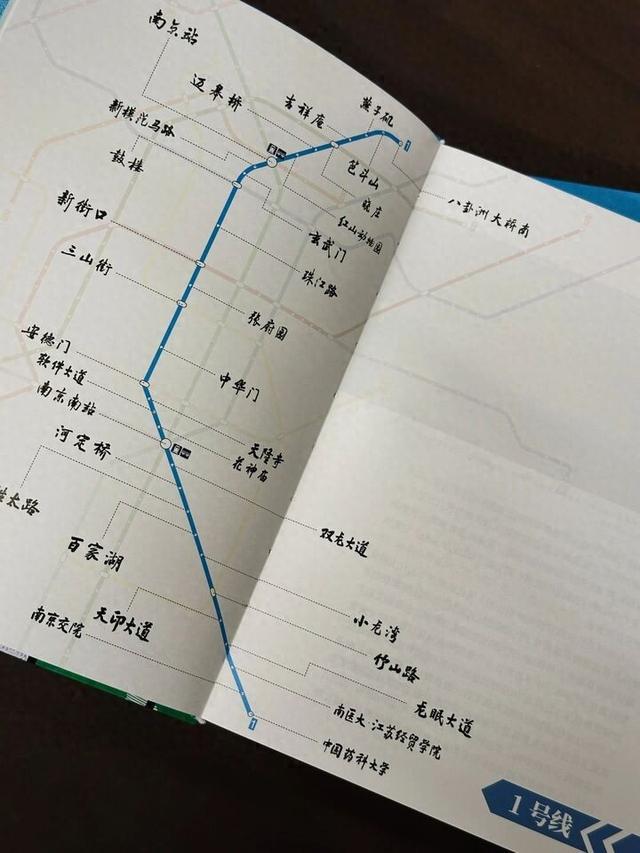 南京站
迈皋桥
吉祥庵
燕子矶
新模范马路
笆斗山
八卦洲大桥南
鼓楼
晓庄
红山动物园
新街口
玄武门
三山街
珠江路
张府园
安德门
软件大道
中华门
南京南站
天隆寺
花神庙
河定桥
胜太路
双龙大道
百家湖
小龙湾
南京交院
天印大道
竹山路
龙眠大道
南医大·江苏经贸学院
中国药科大学
1
1
1号线